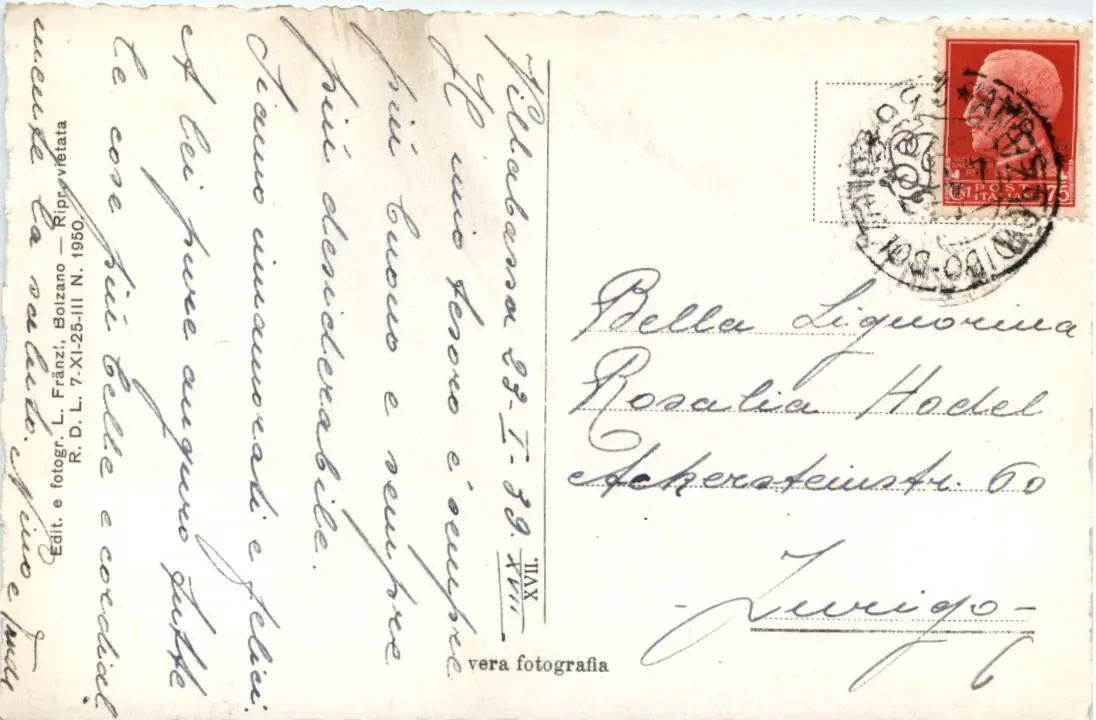 Villabassa 23-I-39. XVII
Il mio tesoro è sempre
più buono e sempre
più desiderabile.
Siamo innamorati e felici.
A lei pure auguro tutte
le cose più belle e cordial
mente la saluto. Nino e
Edit. e fotogr. L. Fränzl, Bolzano — Ripr. vietata
R. D. L. 7-XI-25-III N. 1950.
XVII.
vera fotografia
Bella Signorina
Rosalia Hodel
Ackersteinstr. 60
- Zurigo -
6
75
POSTE